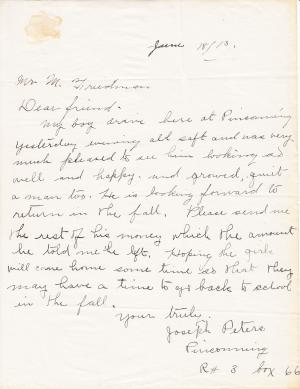 June 18/13.
Mr M. Friedman
Dear friend.
My boy drove here at Pinconning
yesterday evening all saft and was very
much pleased to see him looking so
well and happy. and growed, quit
a man too. He is looking forward to
return in the fall. Please send me
the rest of his money which the amount
he told me he left. Hoping the girls
will come home some time so that they
may have a time to go back to school
in the fall.
Your truly.
Joseph Peters
Pinconning
R# 3 box 66